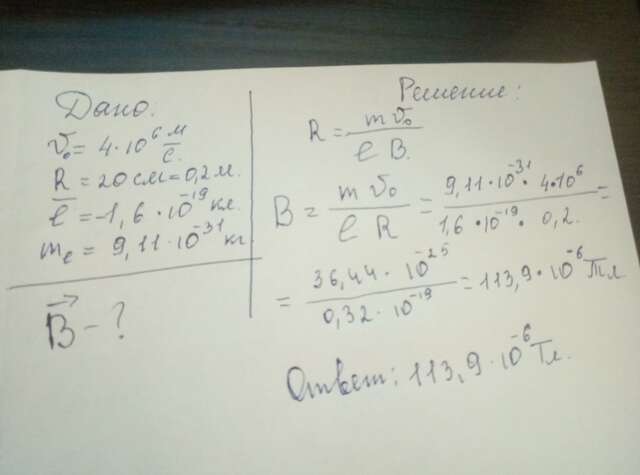 Дано:
v₀ = 4·10⁶ м/с.
R = 20 см = 0,2 м.
e̅ = -1,6·10⁻¹⁹ кл.
mₑ = 9,11·10⁻³¹ кг.
B⃗ - ?
Решение:
R = m v₀ / e B.
B = m v₀ / e R = 9,11·10⁻³¹ · 4·10⁶ / 1,6·10⁻¹⁹ · 0,2. =
= 36,44·10⁻²⁵ / 0,32·10⁻¹⁹ = 113,9·10⁻⁶ Тл
Ответ: 113,9·10⁻⁶ Тл.